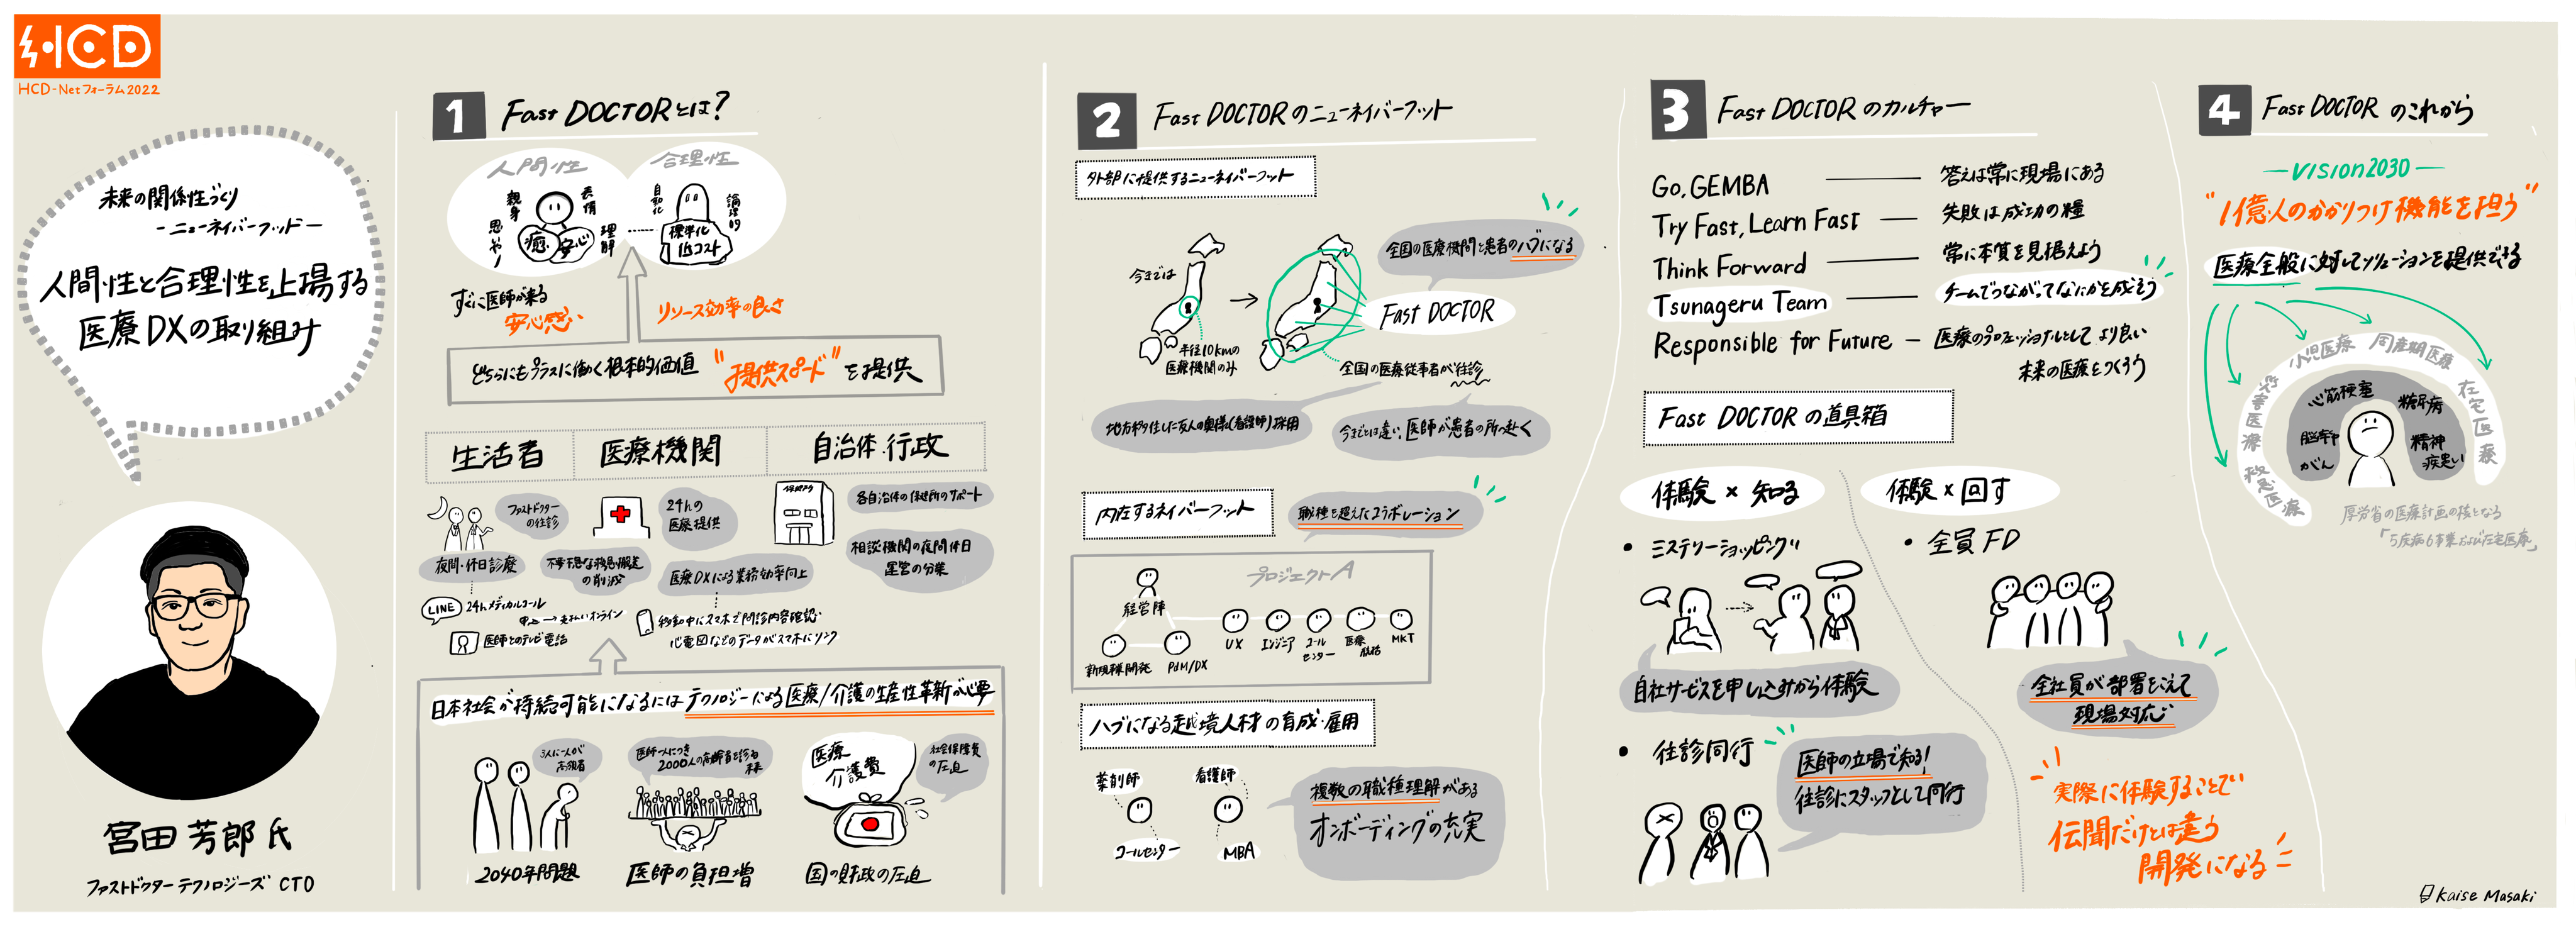 HCD
HCD-Netフォーラム2022
未来の関係性づくり
-ニューネイバーフッド-
人間性と合理性を止揚する
医療DXの取り組み
宮田 芳郎 氏
ファストドクターテクノロジーズ CTO
1 Fast DOCTORとは?
人間性
親身
表情
思やり
理解
癒
安心
合理性
自動化
論理的
標準化
低コスト
すぐに医師が来る
安心感い
リソース効率の良さ
どちらにもプラスに働く根本的価値 "提供スピード" を提供
生活者
医療機関
自治体・行政
ファストドクター
の往診
夜間・休日診療
LINE 24hメディカルコール
申込→支払いオンライン
医師とのテレビ電話
24hの
医療提供
不要不急な救急搬送
の削減
医療DXによる業務効率向上
移動中にスマホで問診内容確認
心電図などのデータがスマホにリンク
各自治体の保健所のサポート
相談機関の夜間休日
運営の分業
日本社会が持続可能になるにはテクノロジーによる医療/介護の生産性革新が必要
3人に一人が
高齢者
2040年問題
医師一人につき
2000人の高齢者を診る
医師の負担増
医療
介護費
社会保障費
の圧迫
国の財政の圧迫
2 Fast DOCTORのニューネイバーフット
外部に提供するニューネイバーフット
今までは
半径10kmの
医療機関のみ
全国の医療機関と患者のハブになる
Fast DOCTOR
全国の医療従事者が往診
地方移住した友人の奥様(看護師)採用
今までとは違い、医師が患者の所へ赴く
内在するネイバーフット
職種を超えたコラボレーション
プロジェクトA
経営陣
新規事業開発
PdM/DX
UX
エンジニア
コール
センター
医療
MKT
ハブになる越境人材の育成・雇用
薬剤師
コールセンター
看護師
MBA
複数の職種理解がある
オンボーディングの充実
3 Fast DOCTORのカルチャー
Go, GEMBA — 答えは常に現場にある
Try Fast, Learn Fast — 失敗は成功の糧
Think Forward — 常に本質を見据えよう
Tsunageru Team — チームでつながってなにかを成そう
Responsible for Future — 医療のプロフェッショナルとしてより良い
未来の医療をつくろう
Fast DOCTORの道具箱
体験×知る
・ミステリーショッピング
自社サービスを申し込みから体験
・往診同行
医師の立場で知る!
往診にスタッフとして同行
体験×回す
・全員FD
全社員が部署をこえて
現場対応
実際に体験することで
伝聞だけとは違う
開発になる
4 Fast DOCTORのこれから
-VISION2030-
"1億人のかかりつけ機能を担う"
医療全般に対してソリューションを提供できる
災害医療
救急医療
小児医療
周産期医療
在宅医療
心筋梗塞
糖尿病
脳卒中
がん
精神
疾患い
厚労省の医療計画の核となる
「5疾病6事業および在宅医療」
Kaise Masaki